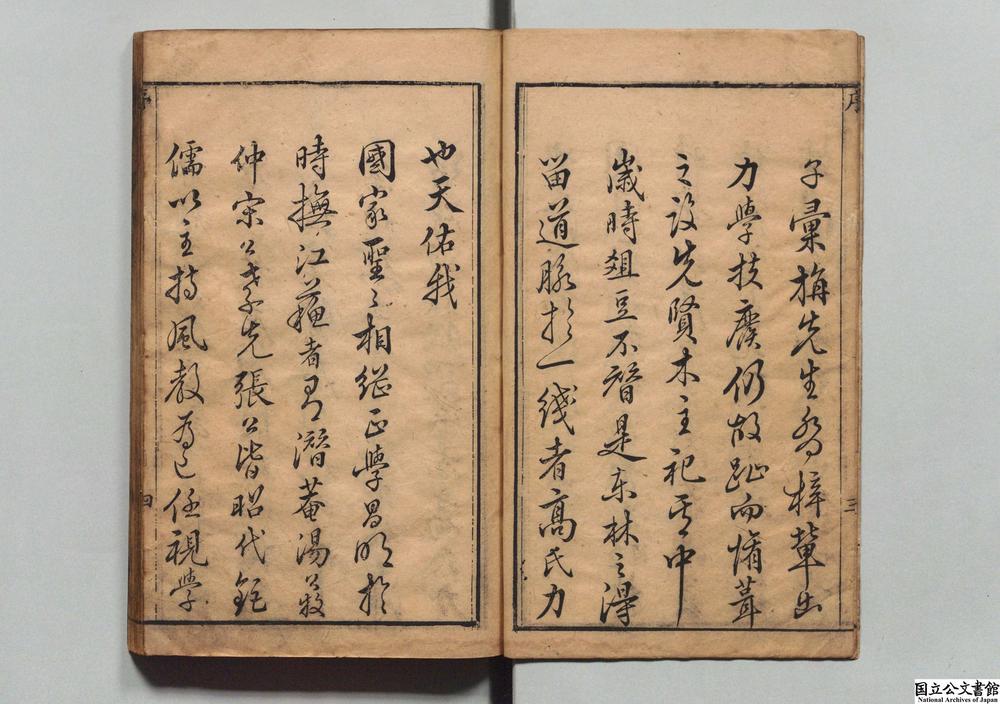 序
三
子彙旃先生喬梓輩出
力學扶廢仍故趾而脩葺
之設先賢木主祀其中
歲時俎豆不替是東林之得
留道脈於一綫者高氏力
也天佑我
國家聖〻相繼正學昌明於
時撫江蘇者有潛菴湯公嗣
仲宋公孝先張公皆昭代鉅
儒以主持風教為己任視學
序
四
国立公文書館
National Archives of Japan